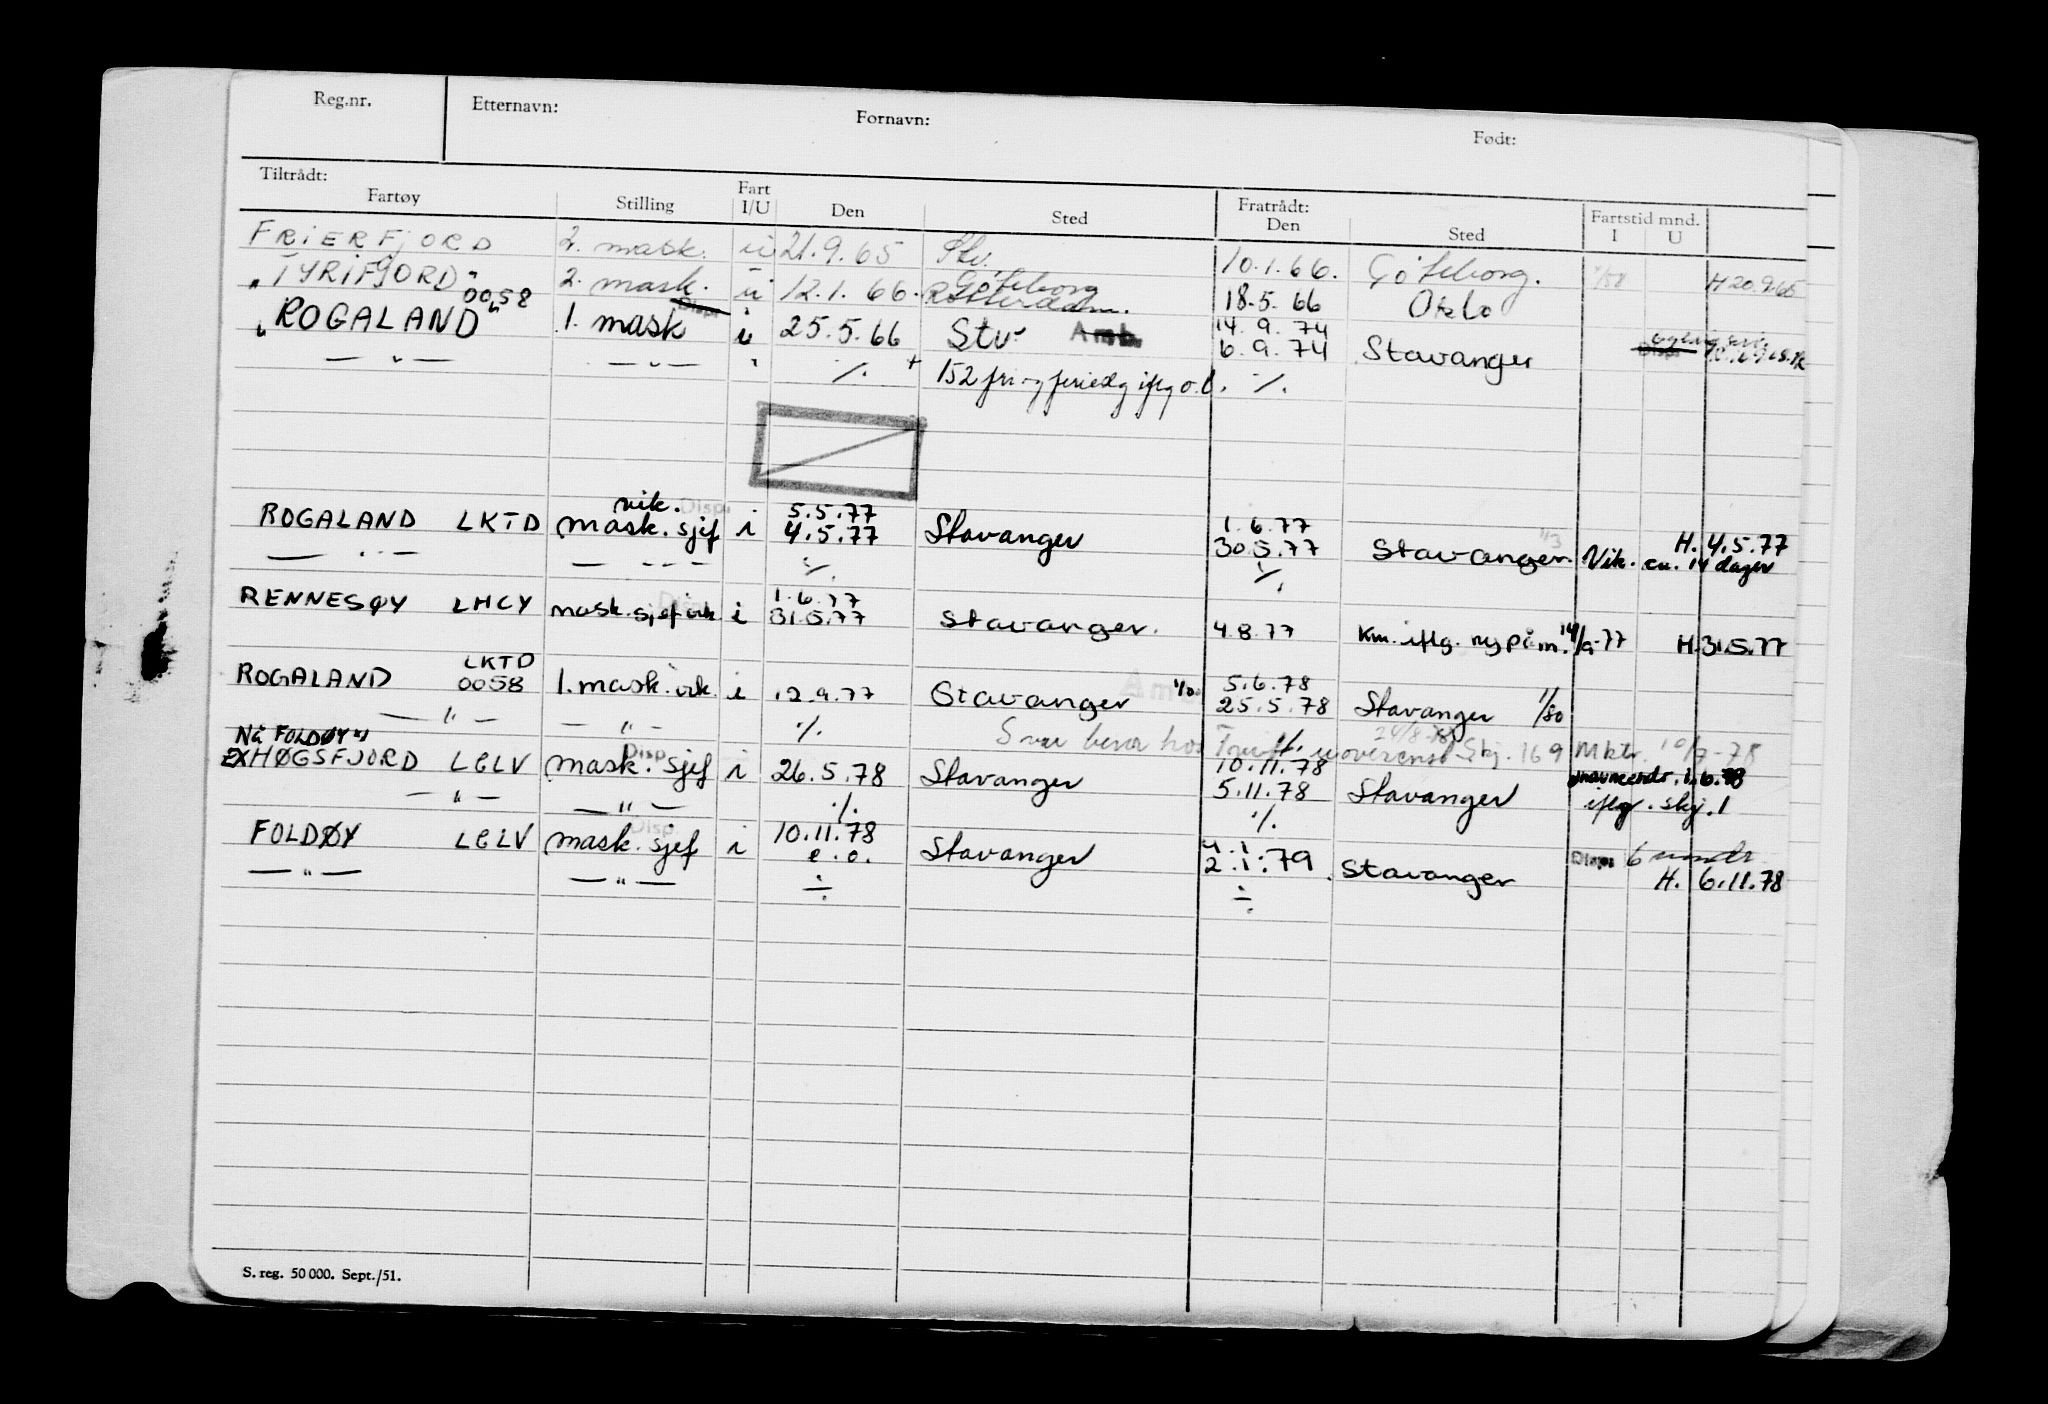 Reg.nr. Etternavn: Fornavn: Født:
Tiltrådt: Fratrådt: Fartstid mnd.
Fartøy Stilling Fart I/U Den Sted Den Sted I U
FRIERFJORD 2. mask. u 21.9.65 Stv. 10.1.66. Göteborg. H 20.9.65
"TYRIFJORD" 2. mask. u 12.1.66. Göteborg 18.5.66 Oslo
"ROGALAND" 0058 1. mask Disp. i 25.5.66 Stv. Amb. 14.9.74
— " — — " — " ./. + 6.9.74 Stavanger Disp.
152 fri og feriedg iflg o.b. ./.
ROGALAND LKTD vik. mask. sjef Disp. i 5.5.77 4.5.77 Stavanger 1.6.77 30.5.77 Stavanger. Vik. ca. 14 dager H. 4.5.77
— " — — " — ./. ./.
RENNESØY LHCY mask. sjef vik i 1.6.77 31.5.77 Stavanger. 4.8.77 Km. iflg. ny p i m. 14/9-77 H. 31.5.77
ROGALAND LKTD 0058 1. mask. vik. i 12.9.77 Stavanger 5.6.78 25.5.78 Stavanger 1/80
— " — — " — ./. ./.
Nå FOLDØY "
EX HØGSFJORD LGLV mask. sjef Disp. i 26.5.78 Stavanger 10.11.78 5.11.78 Stavanger navneendr. 1.6.78
— " — — " — ./. ./. iflg. skj. 1
FOLDØY LGLV mask. sjef Disp. i 10.11.78 e.o. Stavanger 4.1 2.1.79 Stavanger Disp. 6 mndr.
— " — — " — ÷ ÷ H. 6.11.78
S. reg. 50 000. Sept./51.